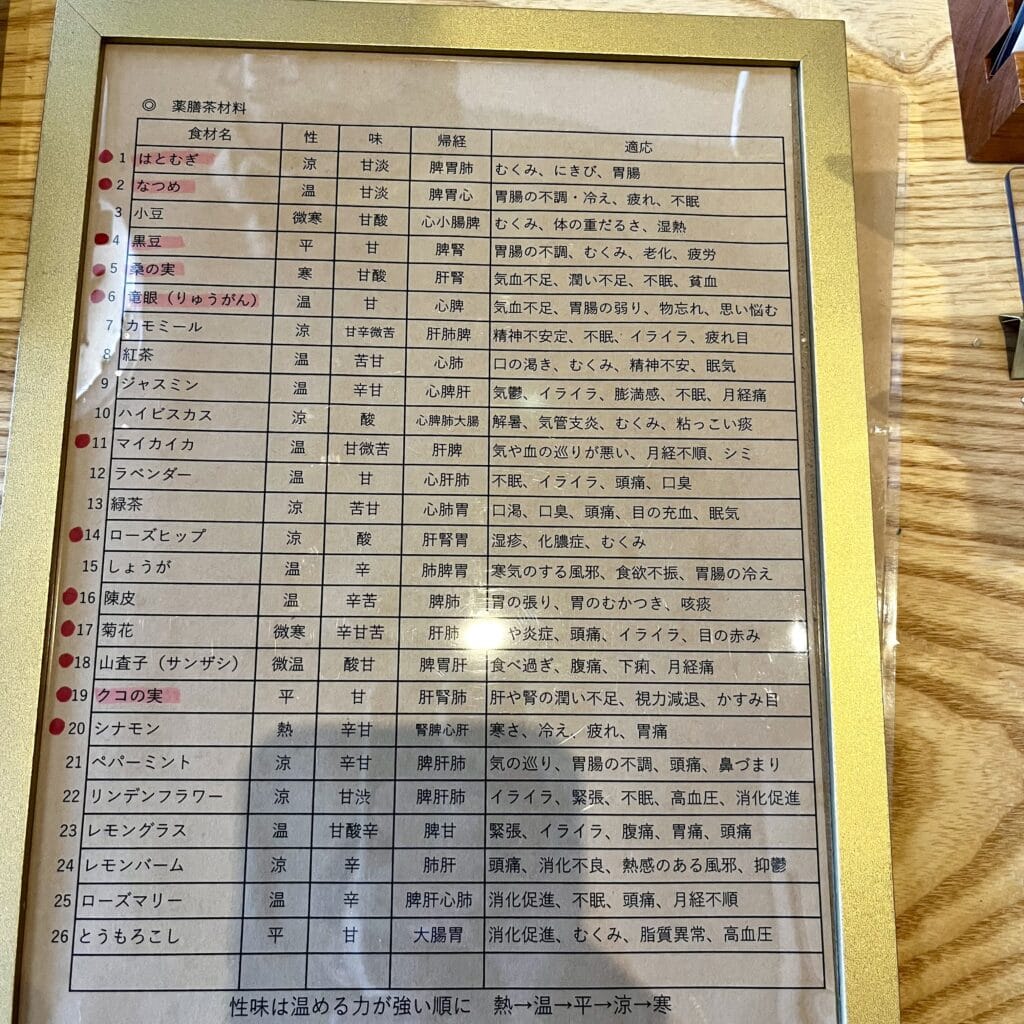 ◎ 薬膳茶材料
食材名 性 味 帰経 適応
1 はとむぎ 涼 甘淡 脾胃肺 むくみ、にきび、胃腸
2 なつめ 温 甘淡 脾胃心 胃腸の不調・冷え、疲れ、不眠
3 小豆 微寒 甘酸 心小腸脾 むくみ、体の重だるさ、湿熱
4 黒豆 平 甘 脾腎 胃腸の不調、むくみ、老化、疲労
5 桑の実 寒 甘酸 肝腎 気血不足、潤い不足、不眠、貧血
6 竜眼（りゅうがん） 温 甘 心脾 気血不足、胃腸の弱り、物忘れ、思い悩む
7 カモミール 涼 甘辛微苦 肝肺脾 精神不安定、不眠、イライラ、疲れ目
8 紅茶 温 苦甘 心肺 口の渇き、むくみ、精神不安、眠気
9 ジャスミン 温 辛甘 心脾肝 気鬱、イライラ、膨満感、不眠、月経痛
10 ハイビスカス 涼 酸 心脾肺大腸 解暑、気管支炎、むくみ、粘っこい痰
11 マイカイカ 温 甘微苦 肝脾 気や血の巡りが悪い、月経不順、シミ
12 ラベンダー 温 甘 心肝肺 不眠、イライラ、頭痛、口臭
13 緑茶 涼 苦甘 心肺胃 口渇、口臭、頭痛、目の充血、眠気
14 ローズヒップ 涼 酸 肝腎胃 湿疹、化膿症、むくみ
15 しょうが 温 辛 肺脾胃 寒気のする風邪、食欲不振、胃腸の冷え
16 陳皮 温 辛苦 脾肺 胃の張り、胃のむかつき、咳痰
17 菊花 微寒 辛甘苦 肝肺 や炎症、頭痛、イライラ、目の赤み
18 山査子（サンザシ） 微温 酸甘 脾胃肝 食べ過ぎ、腹痛、下痢、月経痛
19 クコの実 平 甘 肝腎肺 肝や腎の潤い不足、視力減退、かすみ目
20 シナモン 熱 辛甘 腎脾心肝 寒さ、冷え、疲れ、胃痛
21 ペパーミント 涼 辛甘 脾肝肺 気の巡り、胃腸の不調、頭痛、鼻づまり
22 リンデンフラワー 涼 甘渋 脾肝肺 イライラ、緊張、不眠、高血圧、消化促進
23 レモングラス 温 甘酸辛 脾甘 緊張、イライラ、腹痛、胃痛、頭痛
24 レモンバーム 涼 辛 肺肝 頭痛、消化不良、熱感のある風邪、抑鬱
25 ローズマリー 温 辛 脾肝心肺 消化促進、不眠、頭痛、月経不順
26 とうもろこし 平 甘 大腸胃 消化促進、むくみ、脂質異常、高血圧
性味は温める力が強い順に 熱→温→平→涼→寒